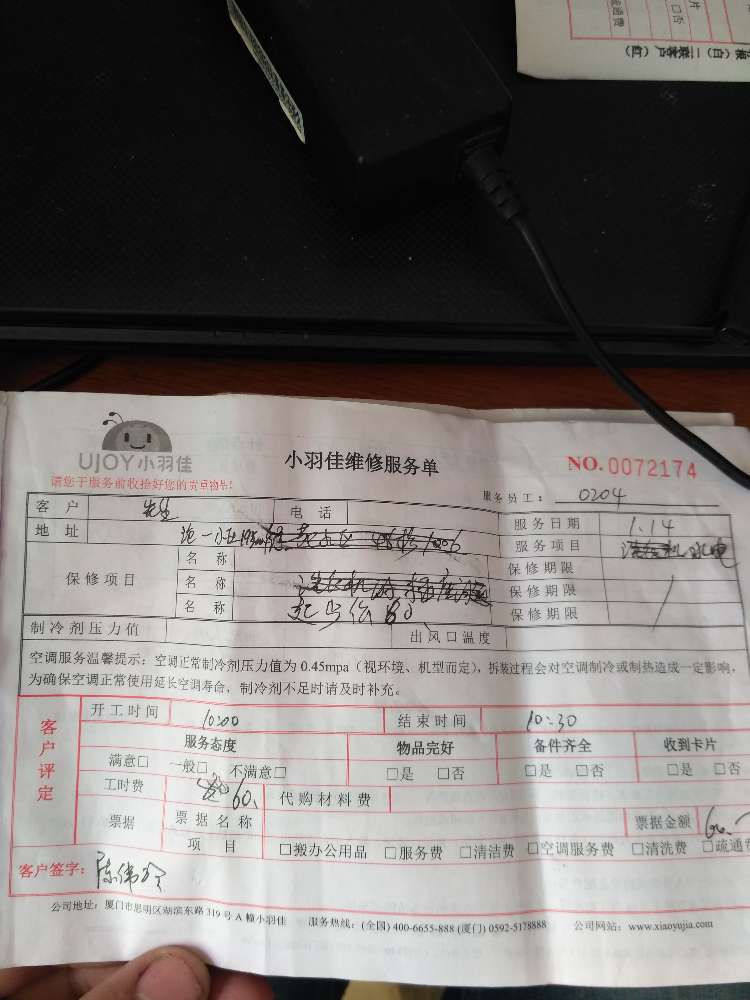 片
□否
疏通费
(白) 二联客户(红)
UJOY小羽佳
小羽佳维修服务单
NO.0072174
请您于服务前收捡好您的贵重物品!
服务员工: 0204
客 户 先生 电 话 服务日期 1.14
地 址 服务项目 水电
保修项目 名 称 保修期限
名 称 保修期限
名 称 保修期限
制冷剂压力值 出风口温度
空调服务温馨提示: 空调正常制冷剂压力值为 0.45mpa (视环境、机型而定), 拆装过程会对空调制冷或制热造成一定影响,
为确保空调正常使用延长空调寿命, 制冷剂不足时请及时补充。
客户评定
开工时间 10:00 结束时间 10:30
服务态度 物品完好 备件齐全 收到卡片
满意□ 一般□ 不满意□ □是 □否 □是 □否 □是 □否
工时费 60. 代购材料费
票据 票据名称 票据金额
项 目 □搬办公用品 □服务费 □清洁费 □空调服务费 □清洗费 □疏通费
客户签字:
公司地址: 厦门市思明区湖滨东路 319 号 A 幢小羽佳 服务热线: (全国) 400-6655-888 (厦门) 0592-5178888 公司网站: www.xiaoyujia.com